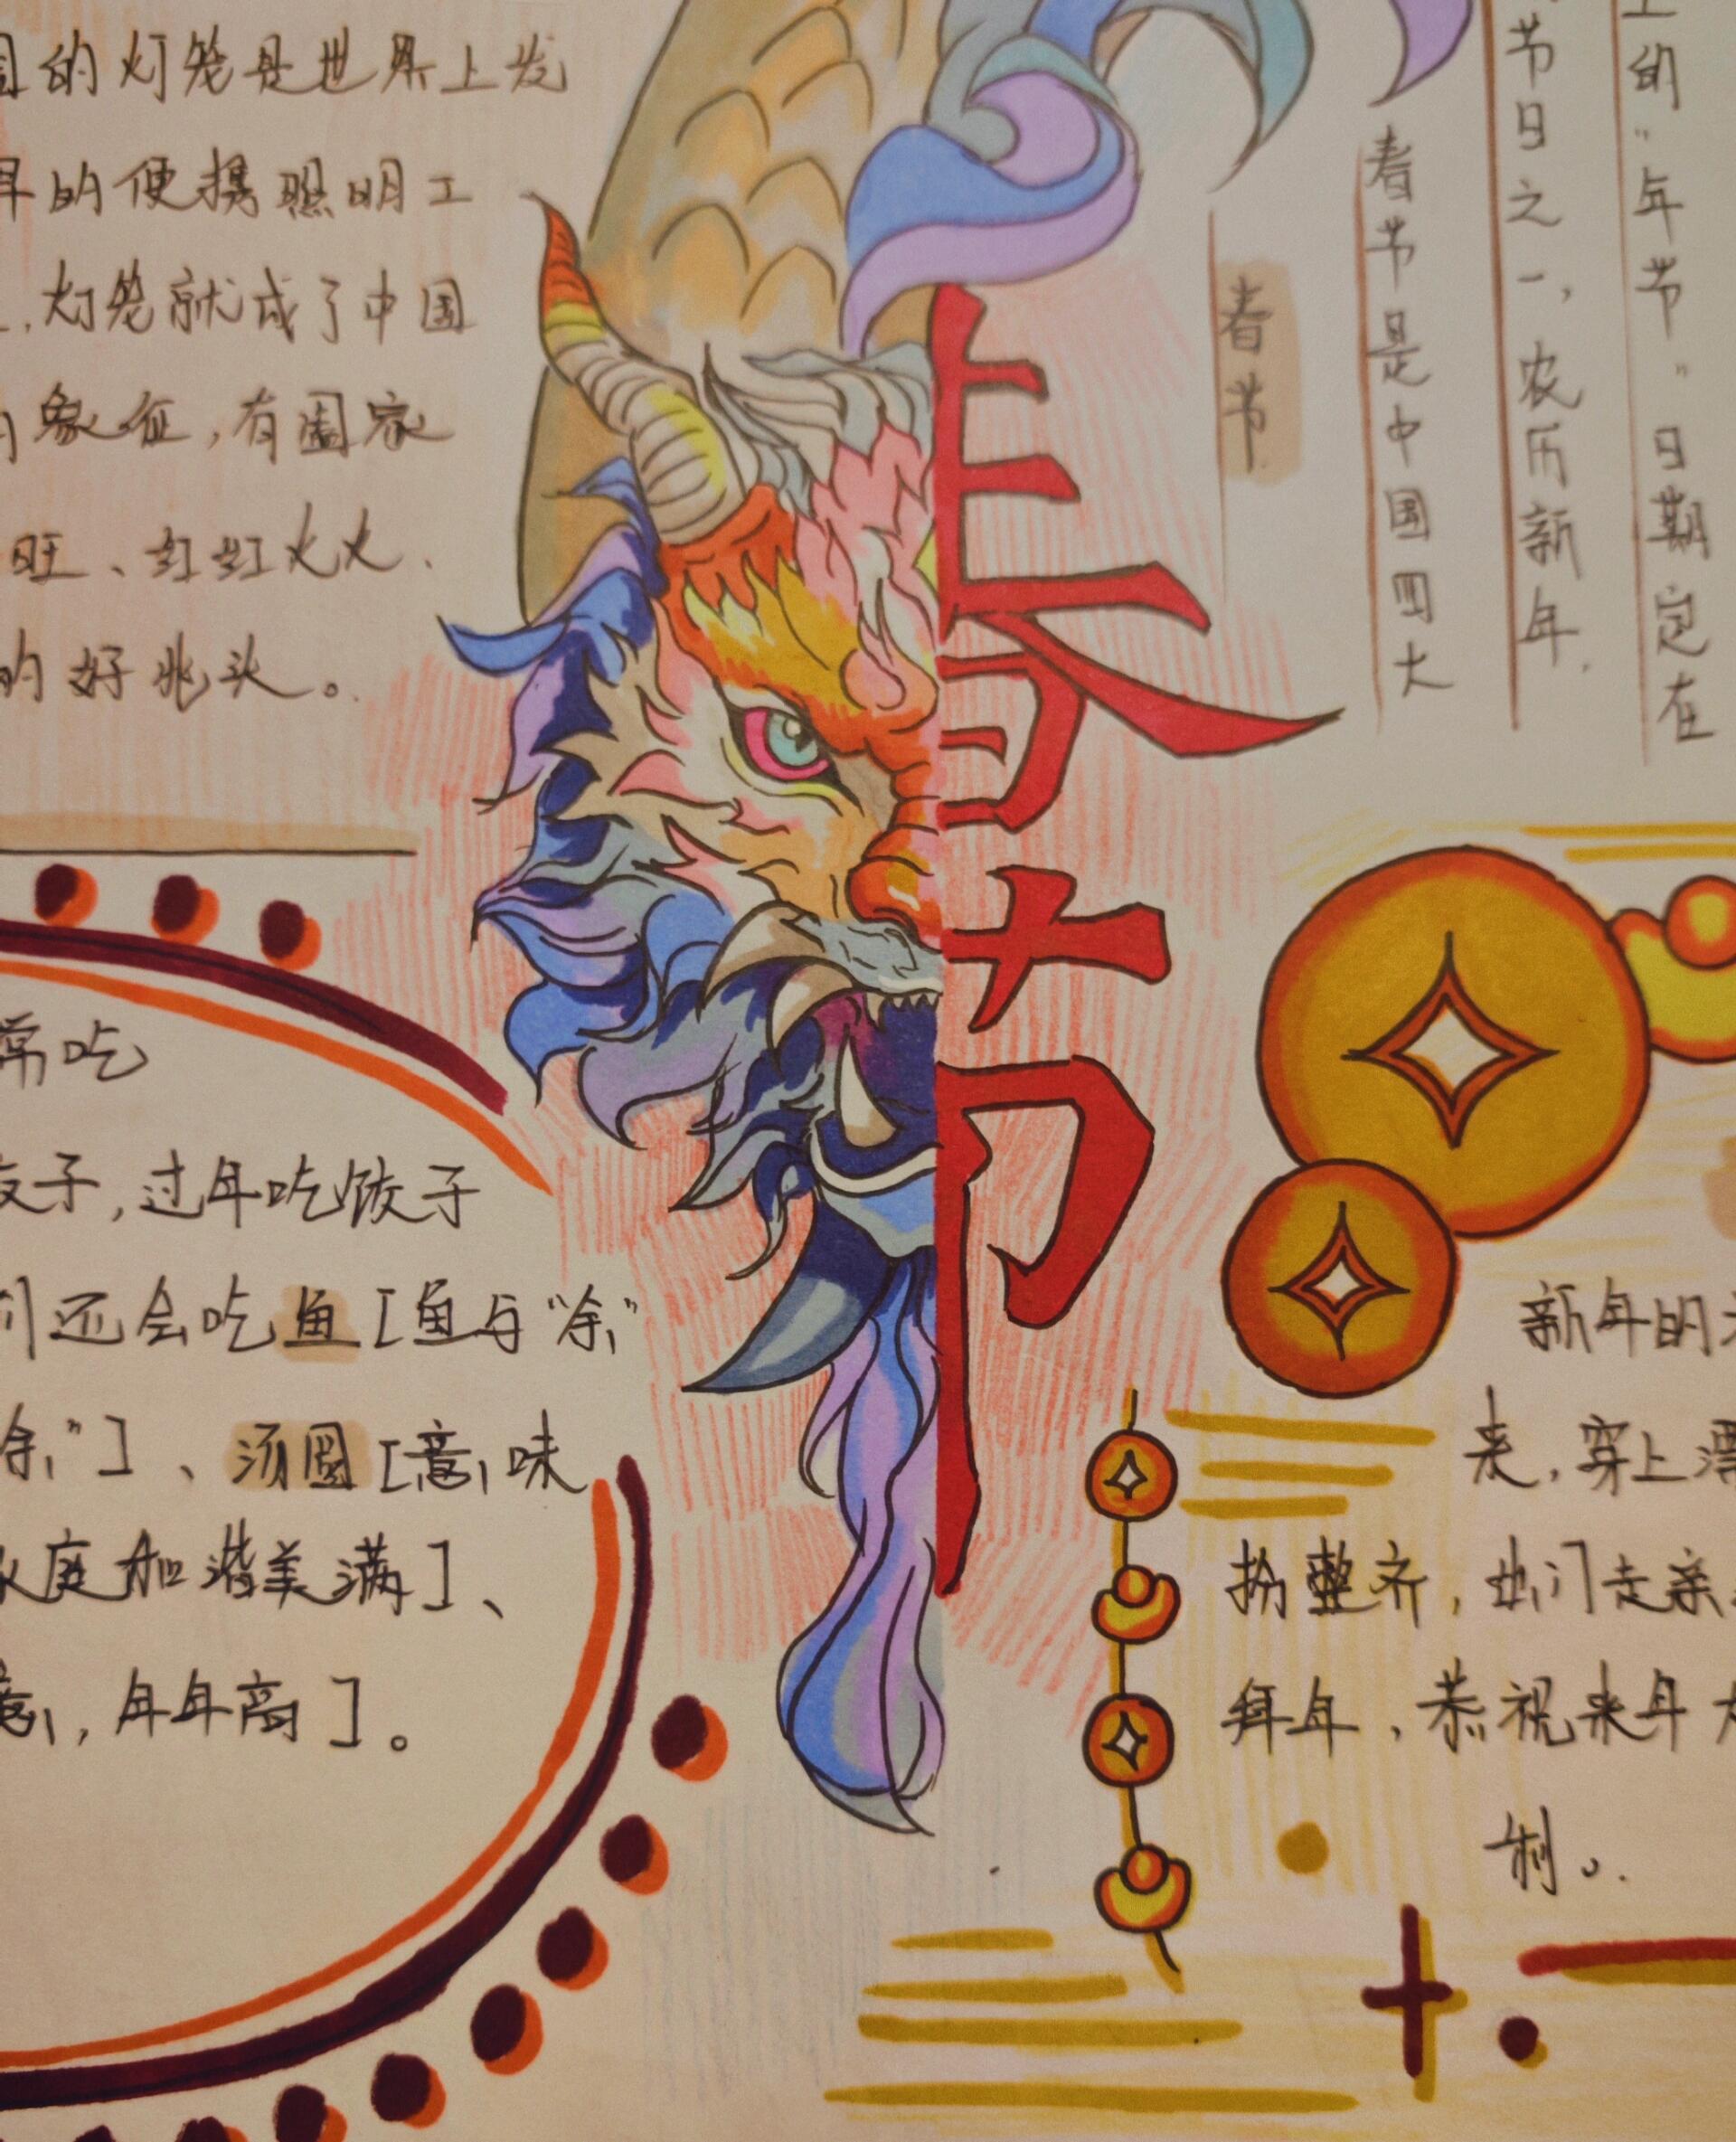 的灯笼是世界上发
的便携照明工
灯笼就成了中国
象征，有国家
旺、红红火火、
的好兆头。
常吃
子，过年吃饺子
还会吃鱼［鱼与“余”
余”］、汤圆［意味
庭和谐美满］、
意，年年高］。
春节
春节
春节是中国四大
节日之一，农历新年．
的“年节”日期定在
新年的
来，穿上漂
扮整齐，出门走亲
拜年，恭祝来年大
利。